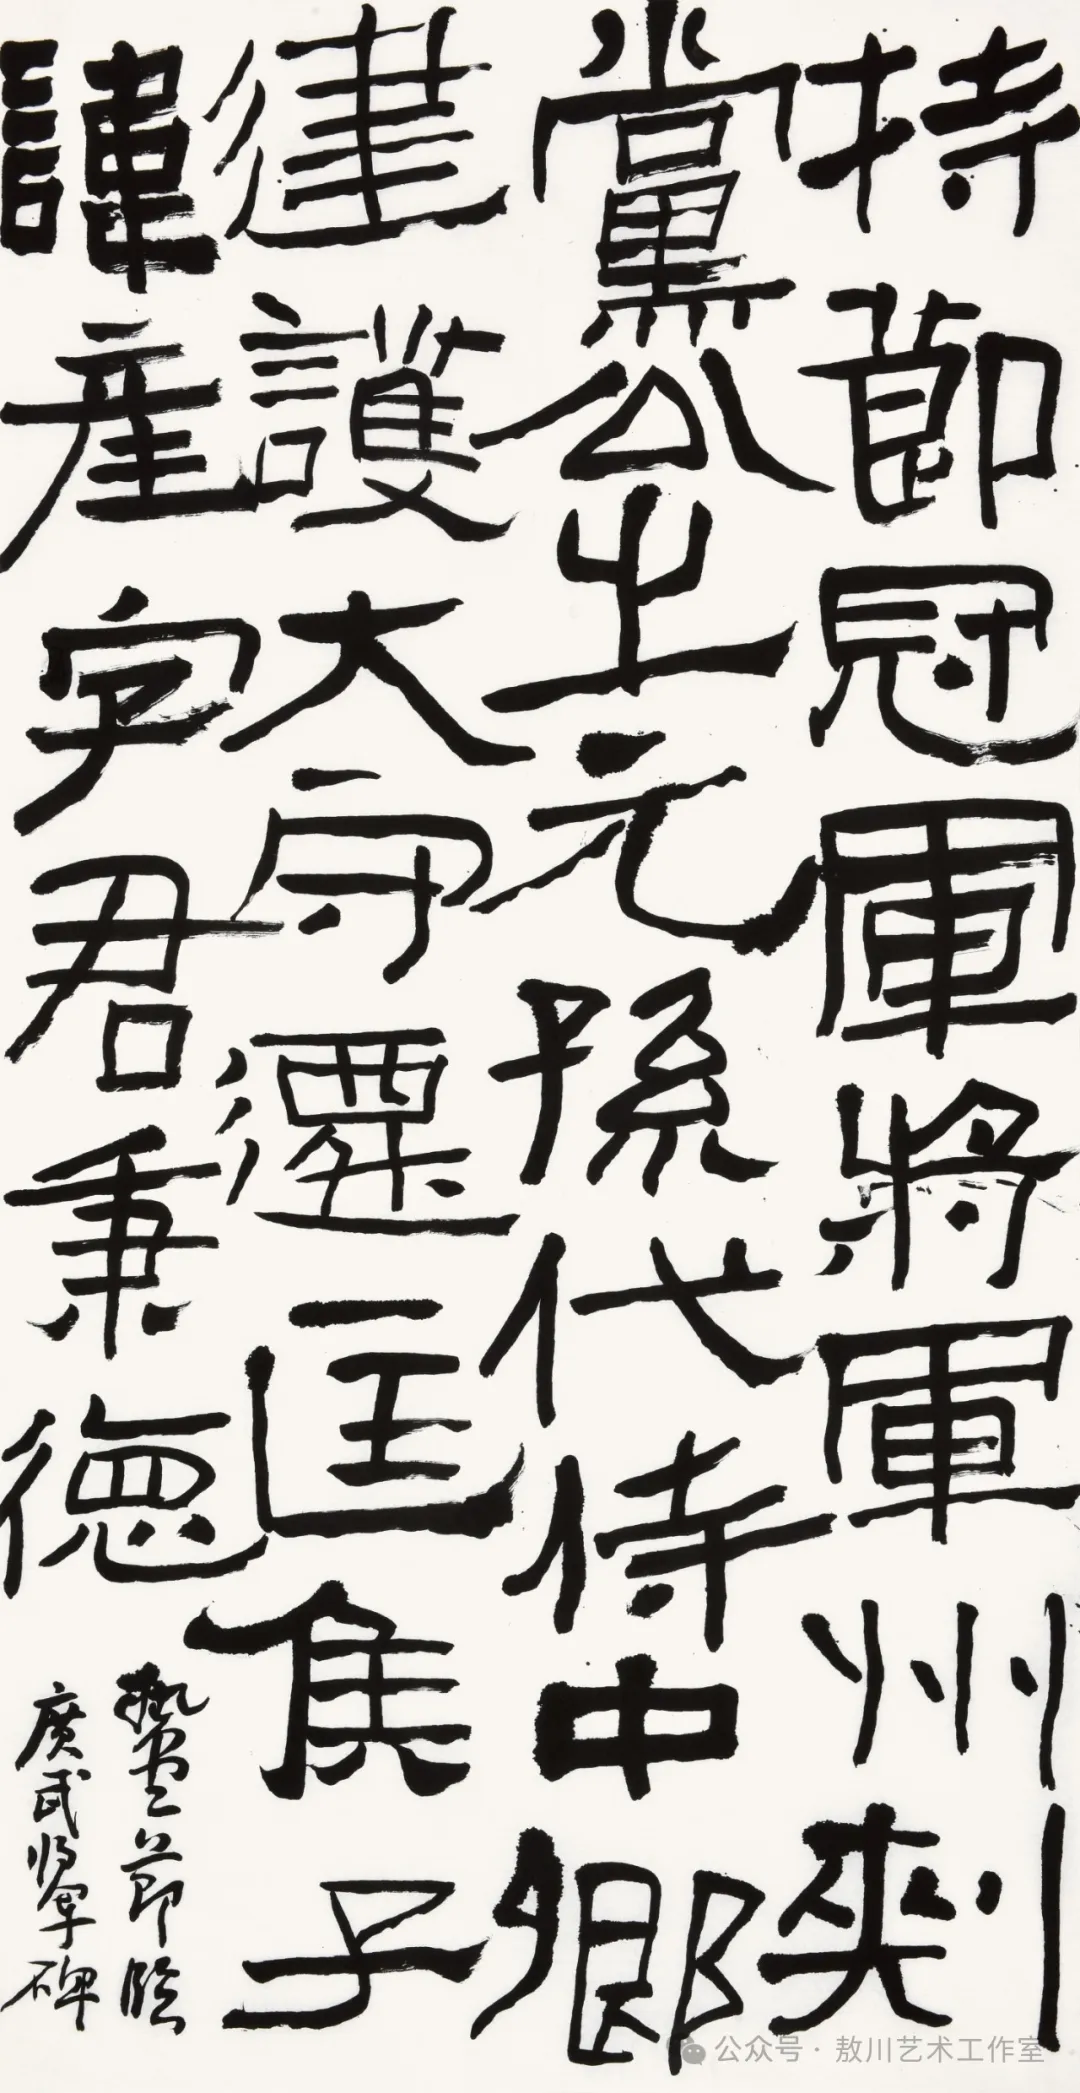 持節冠軍將軍州刾
黨公之元孫代侍中卿
建護大守遷匡侯子
諱産字君秉德
堂節臨
廣武將軍碑
公众号·敖川艺术工作室